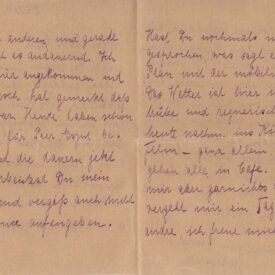 anderen und gerade
es andauernd. Ich
angekommen und
noch hat gemerkt daß
von Heute haben schön
für Peer Gynt be-
und die dauern jetzt
arbeitest Du mein
und vergiß auch nicht
aufzugeben.
Hast Du nochmals m
gesprochen was sagt e
Plan mit der möbl
Das Wetter ist hier
trübe und regnerisch
heute nachm. ins K
Film – ganz allein
gehen alle in Cafe.
mir aber garnichts
vergeht mir ein Tag
andre, ich freue mich